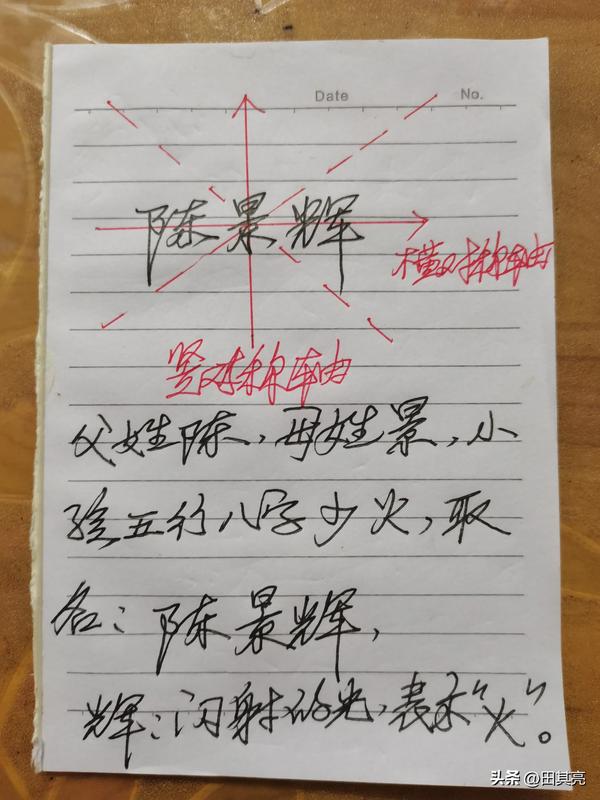 Date No.
陈景辉
横对称轴
竖对称轴
父姓陈,母姓景,小
孩五行八字少火,取
名:陈景辉,
辉:闪射的光,表示“火”。
头条 @田其亮